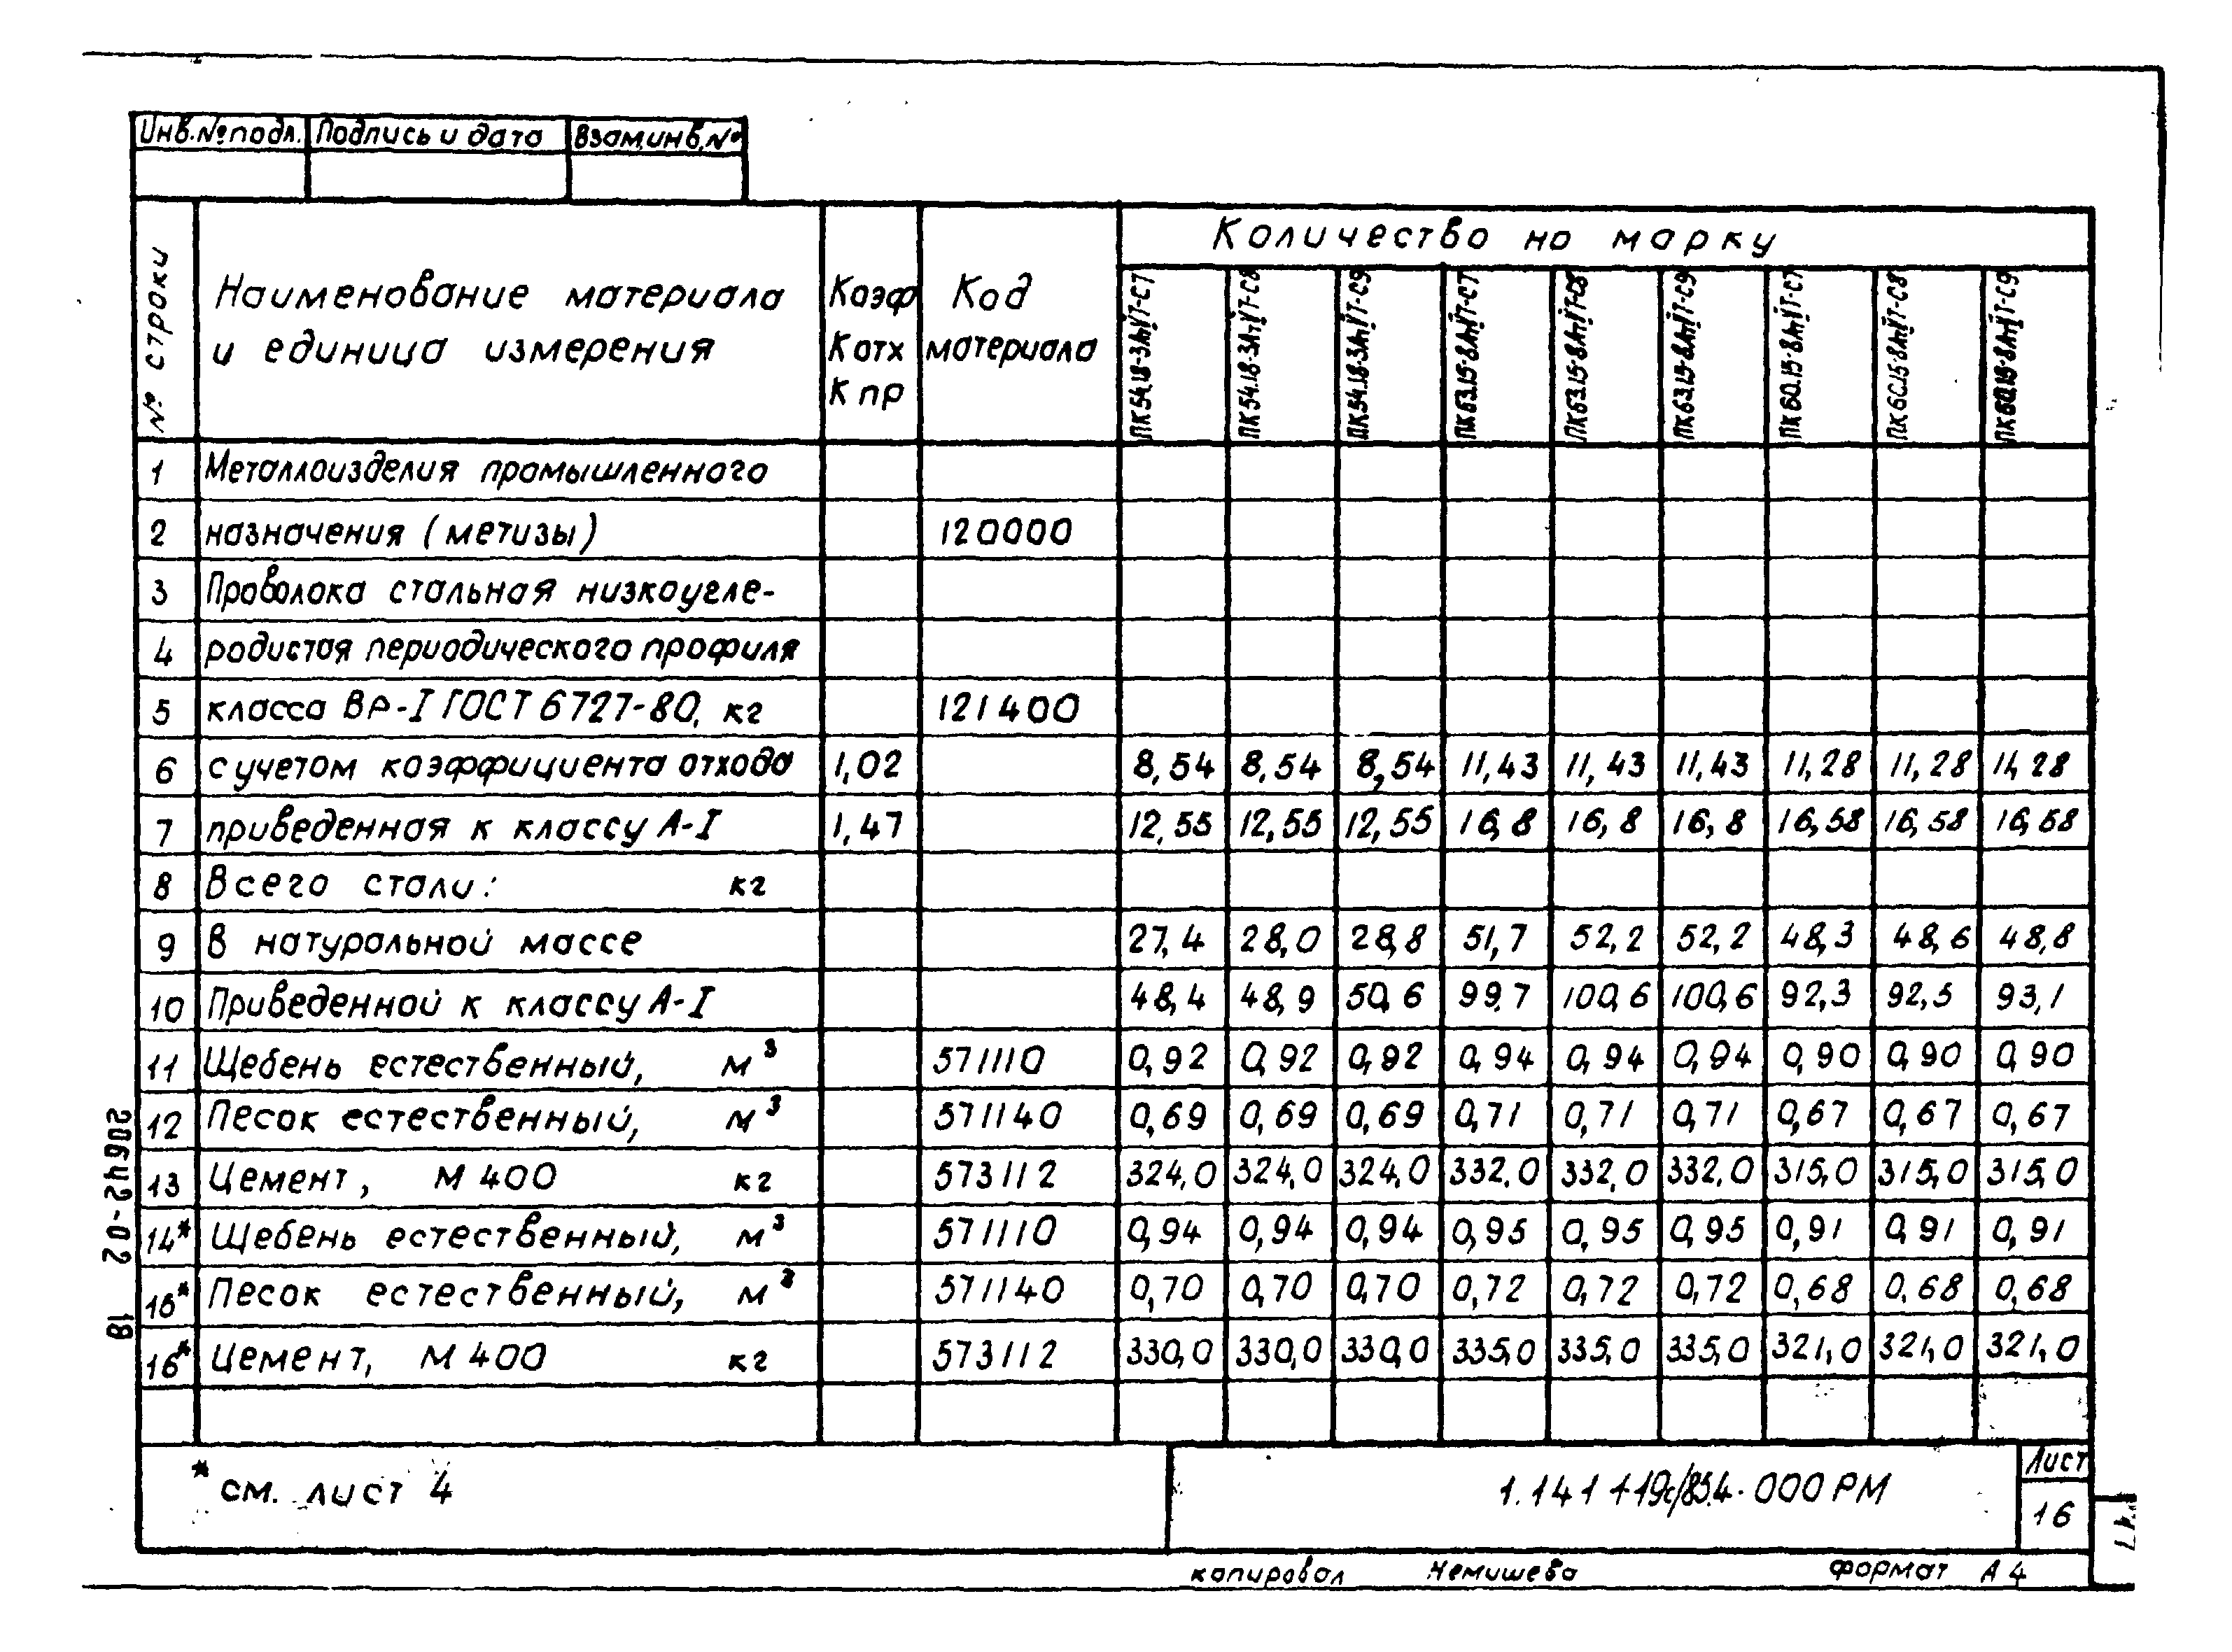 Инв.№подл. Подпись и дата Взам.инв.№
№ строки Наименование материала и единица измерения Коэф Котх Кпр Код материала Количество на марку
1 Металлоизделия промышленного
2 назначения (метизы) 120000
3 Проволока стальная низкоугле-
4 родистая периодического профиля
5 класса ВР-I ГОСТ 6727-80, кг 121400
6 с учетом коэффициента отхода 1,02 8,54 8,54 8,54 11,43 11,43 11,43 11,28 11,28 11,28
7 приведенная к классу А-I 1,47 12,55 12,55 12,55 16,8 16,8 16,8 16,58 16,58 16,58
8 Всего стали: кг
9 В натуральной массе 27,4 28,0 28,8 51,7 52,2 52,2 48,3 48,6 48,8
10 Приведенной к классу А-I 48,4 48,9 50,6 99,7 100,6 100,6 92,3 92,5 93,1
11 Щебень естественный, м³ 571110 0,92 0,92 0,92 0,94 0,94 0,94 0,90 0,90 0,90
12 Песок естественный, м³ 571140 0,69 0,69 0,69 0,71 0,71 0,71 0,67 0,67 0,67
13 Цемент, М 400 кг 573112 324,0 324,0 324,0 332,0 332,0 332,0 315,0 315,0 315,0
14* Щебень естественный, м³ 571110 0,94 0,94 0,94 0,95 0,95 0,95 0,91 0,91 0,91
15* Песок естественный, м³ 571140 0,70 0,70 0,70 0,72 0,72 0,72 0,68 0,68 0,68
16* Цемент, М 400 кг 573112 330,0 330,0 330,0 335,0 335,0 335,0 321,0 321,0 321,0
* см. лист 4
000 РМ
Лист
16
копировал Немишева формат А4
20642-02 18
17